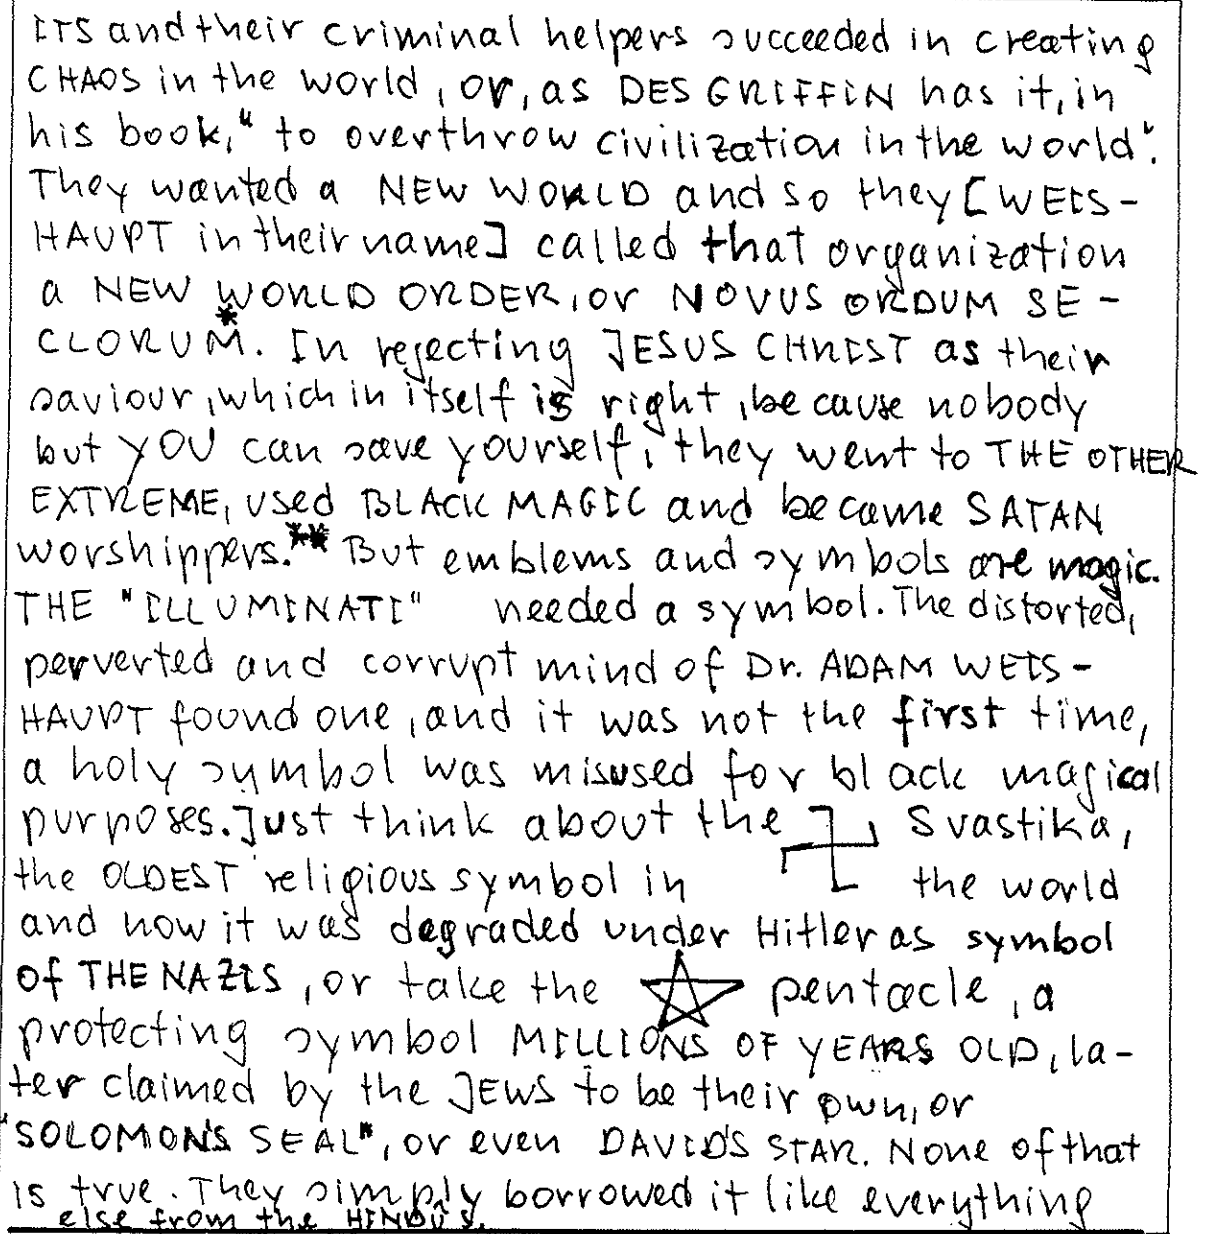 ITS and their criminal helpers succeeded in creating
CHAOS in the world, or, as DES GRIFFIN has it, in
his book, "to overthrow civilization in the world".
They wanted a NEW WORLD and so they [WEIS-
HAUPT in their name] called that organization
a NEW WORLD ORDER, or NOVUS ORDUM SE-
CLORUM.* In rejecting JESUS CHRIST as their
saviour, which in itself is right, because nobody
but YOU can save yourself, they went to THE OTHER
EXTREME, used BLACK MAGIC and became SATAN
worshippers.** But emblems and symbols are magic.
THE "ILLUMINATI" needed a symbol. The distorted,
perverted and corrupt mind of Dr. ADAM WEIS-
HAUPT found one, and it was not the first time,
a holy symbol was misused for black magical
purposes. Just think about the Svastika,
the OLDEST religious symbol in the world
and how it was degraded under Hitler as symbol
of THE NAZIS, or take the pentacle, a
protecting symbol MILLIONS OF YEARS OLD, la-
ter claimed by the JEWS to be their own, or
"SOLOMON'S SEAL", or even DAVID'S STAR. None of that
is true. They simply borrowed it like everything
else from the HINDUS.